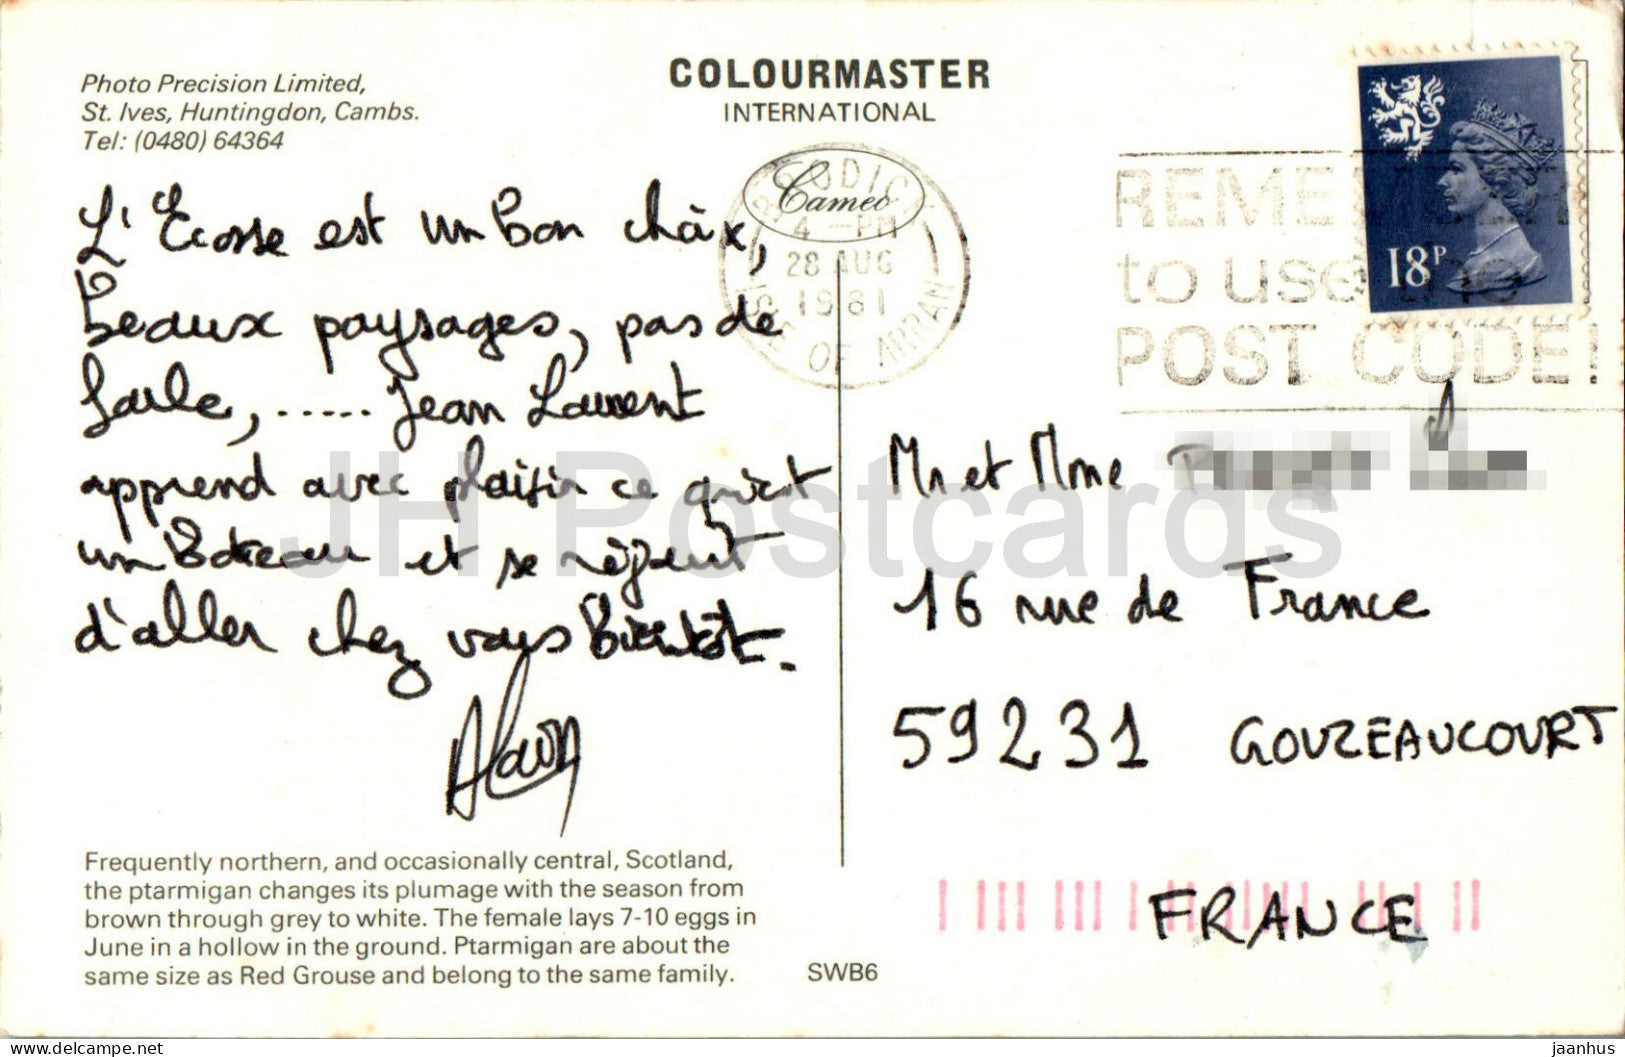 Photo Precision Limited,
St. Ives, Huntingdon, Cambs.
Tel: (0480) 64364
COLOURMASTER
INTERNATIONAL
Cameo
BRODICK
4 - PM
28 AUG
1981
ISLE OF ARRAN
REMEMBER
to use the
POST CODE!
18P
L'Ecosse est un bon choix,
beaux paysages, pas de
foule, ..... Jean Laurent
apprend avec plaisir ce qu'est
un Bateau et se réjouit
d'aller chez vous Bientôt.
Alain
Mr et Mme
16 rue de France
59231 GOUZEAUCOURT
FRANCE
Frequently northern, and occasionally central, Scotland,
the ptarmigan changes its plumage with the season from
brown through grey to white. The female lays 7-10 eggs in
June in a hollow in the ground. Ptarmigan are about the
same size as Red Grouse and belong to the same family.
SWB6
JH Postcards
www.delcampe.net
jaanhus